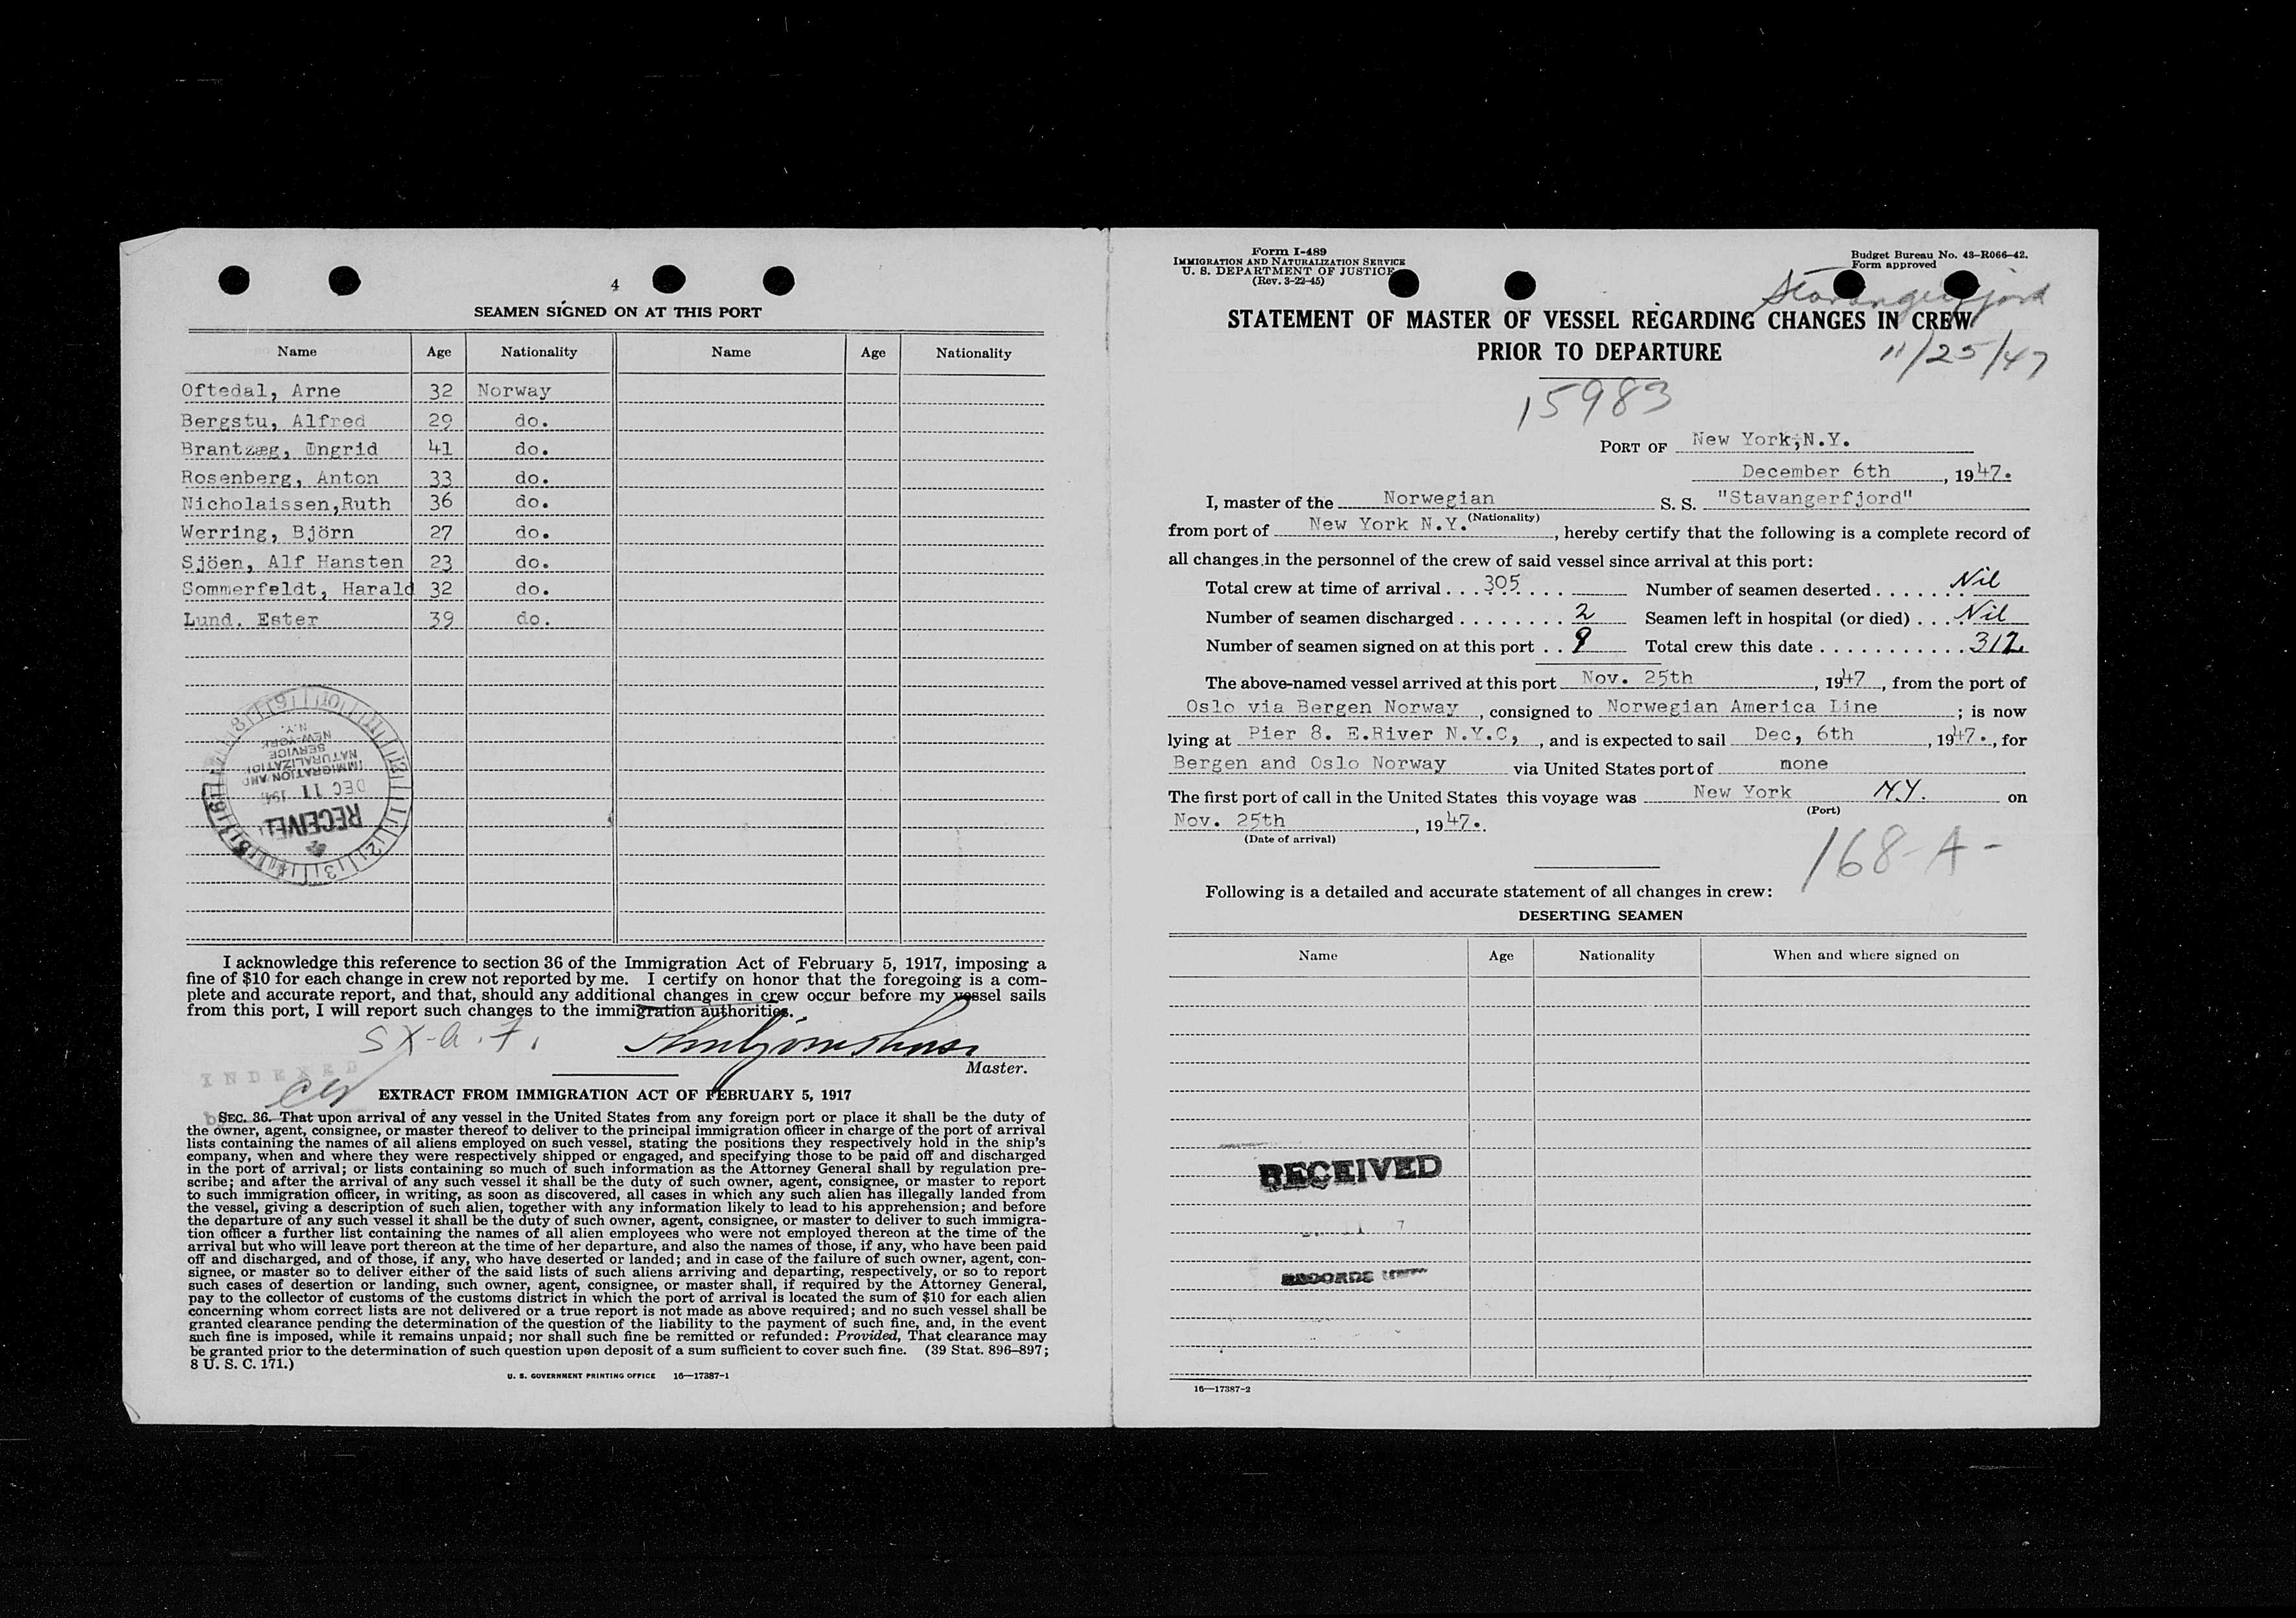 4
SEAMEN SIGNED ON AT THIS PORT
Name Age Nationality Name Age Nationality
Oftedal, Arne 32 Norway
Bergstu, Alfred 29 do.
Brantzæg, Ingrid 41 do.
Rosenberg, Anton 33 do.
Nicholaissen,Ruth 36 do.
Werring, Björn 27 do.
Sjöen, Alf Hansten 23 do.
Sommerfeldt, Harald 32 do.
Lund. Ester 39 do.
RECEIVED
DEC 11 194
IMMIGRATION AND
NATURALIZATION
SERVICE
NEW-YORK
N.Y.
I acknowledge this reference to section 36 of the Immigration Act of February 5, 1917, imposing a
fine of $10 for each change in crew not reported by me. I certify on honor that the foregoing is a com-
plete and accurate report, and that, should any additional changes in crew occur before my vessel sails
from this port, I will report such changes to the immigration authorities.
SX-a.7.
Master.
INDEXED
EXTRACT FROM IMMIGRATION ACT OF FEBRUARY 5, 1917
SEC. 36. That upon arrival of any vessel in the United States from any foreign port or place it shall be the duty of
the owner, agent, consignee, or master thereof to deliver to the principal immigration officer in charge of the port of arrival
lists containing the names of all aliens employed on such vessel, stating the positions they respectively hold in the ship's
company, when and where they were respectively shipped or engaged, and specifying those to be paid off and discharged
in the port of arrival; or lists containing so much of such information as the Attorney General shall by regulation pre-
scribe; and after the arrival of any such vessel it shall be the duty of such owner, agent, consignee, or master to report
to such immigration officer, in writing, as soon as discovered, all cases in which any such alien has illegally landed from
the vessel, giving a description of such alien, together with any information likely to lead to his apprehension; and before
the departure of any such vessel it shall be the duty of such owner, agent, consignee, or master to deliver to such immigra-
tion officer a further list containing the names of all alien employees who were not employed thereon at the time of the
arrival but who will leave port thereon at the time of her departure, and also the names of those, if any, who have been paid
off and discharged, and of those, if any, who have deserted or landed; and in case of the failure of such owner, agent, con-
signee, or master so to deliver either of the said lists of such aliens arriving and departing, respectively, or so to report
such cases of desertion or landing, such owner, agent, consignee, or master shall, if required by the Attorney General,
pay to the collector of customs of the customs district in which the port of arrival is located the sum of $10 for each alien
concerning whom correct lists are not delivered or a true report is not made as above required; and no such vessel shall be
granted clearance pending the determination of the question of the liability to the payment of such fine, and, in the event
such fine is imposed, while it remains unpaid; nor shall such fine be remitted or refunded: Provided, That clearance may
be granted prior to the determination of such question upon deposit of a sum sufficient to cover such fine. (39 Stat. 896–897;
8 U. S. C. 171.)
U. S. GOVERNMENT PRINTING OFFICE 16—17387-1
Form I-489
IMMIGRATION AND NATURALIZATION SERVICE
U. S. DEPARTMENT OF JUSTICE
(Rev. 3-22-45)
Budget Bureau No. 43-R066-42.
Form approved
Stavangerfjord
STATEMENT OF MASTER OF VESSEL REGARDING CHANGES IN CREW
PRIOR TO DEPARTURE
11/25/47
15983
PORT OF New York,N.Y.
December 6th, 1947.
I, master of the Norwegian S. S. "Stavangerfjord"
(Nationality)
from port of New York N.Y., hereby certify that the following is a complete record of
all changes in the personnel of the crew of said vessel since arrival at this port:
Total crew at time of arrival . . . 305 Number of seamen deserted . . . . . . . Nil
Number of seamen discharged . . . . . . . . 2 Seamen left in hospital (or died) . . . Nil
Number of seamen signed on at this port . . 9 Total crew this date . . . . . . . . . . . . 312
The above-named vessel arrived at this port Nov. 25th, 1947, from the port of
Oslo via Bergen Norway, consigned to Norwegian America Line; is now
lying at Pier 8. E.River N.Y.C,, and is expected to sail Dec, 6th, 1947., for
Bergen and Oslo Norway via United States port of mone
The first port of call in the United States this voyage was New York N.Y. on
(Port)
Nov. 25th, 1947.
(Date of arrival)
168-A-
Following is a detailed and accurate statement of all changes in crew:
DESERTING SEAMEN
Name Age Nationality When and where signed on
RECEIVED
RECORDS
16—17387-2